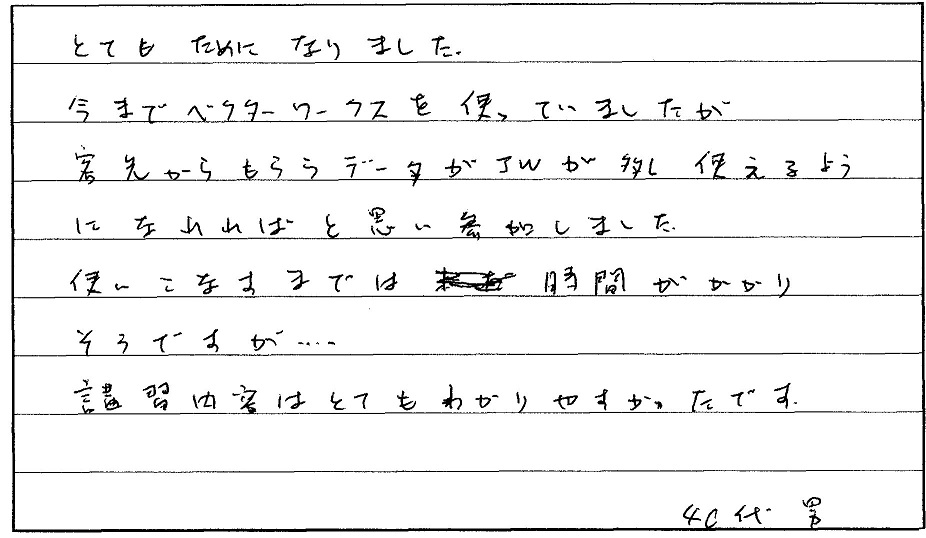 とても ためになりました.
今までベクターワークスを使っていましたが
客先からもらうデータがJWが多し 使えるよう
になれればと思い参加しました.
使いこなすまでは 時間がかかり
そうですが‥‥
講習内容はとてもわかりやすかったです.
40代 男